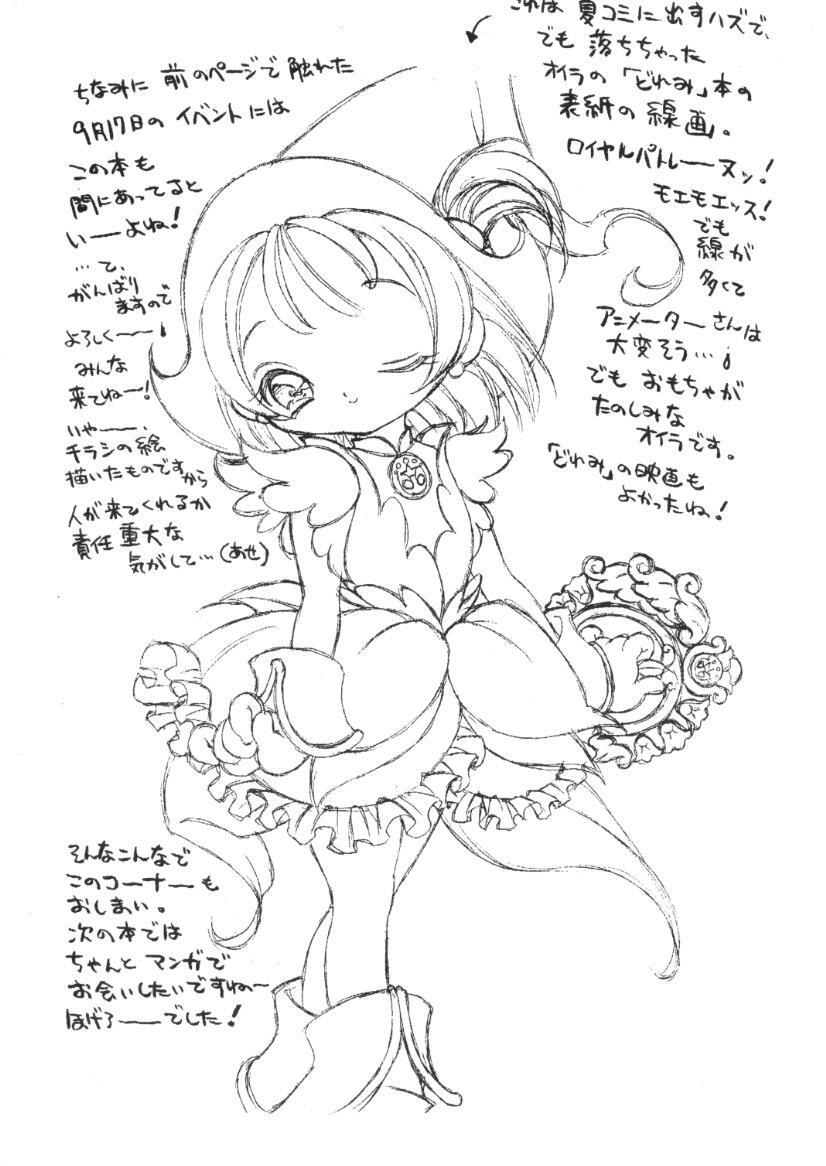 これは 夏コミに出すハズで、
でも 落ちちゃった
オイラの 「どれみ」本の
表紙の 線画。
ロイヤルパトレーーヌッ!
モエモエッス!
でも
線が
多くて
アニメーターさんは
大変そう…
でも おもちゃが
たのしみな
オイラです。
「どれみ」の映画も
よかったね!
ちなみに 前のページで 触れた
9月17日の イベントには
この本も
間にあってると
いーーよね!
…て、
がんばり
ますので
よろしくーー!
みんな
来てねー!
いやーー、
チラシの絵
描いたものですから
人が来てくれるか
責任重大な
気がして…(あせ)
そんなこんなで
このコーナーも
おしまい。
次の本では
ちゃんと マンガで
お会いしたいですね〜
ほげろーーでした!